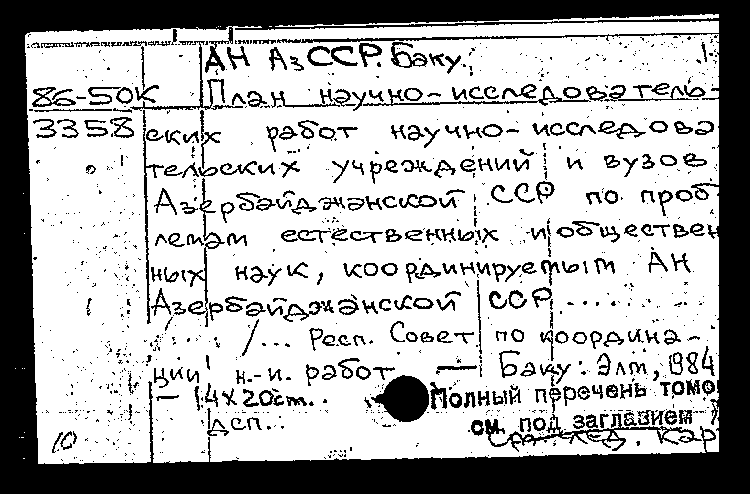 АН АзССР. Баку.
86-50К План научно-исследователь-
3358 ских работ научно-исследова
тельских учреждений и вузов
Азербайджанской ССР по проб
лемам естественных и обществен
ных наук, координируемым АН
Азербайджанской ССР......
/... Респ. Совет по координа-
ции н.-и. работ — Баку: Элм, 1984
— 14х20ст..
Полный перечень томо
дсп.
см. под заглавием
См. след. кар
10